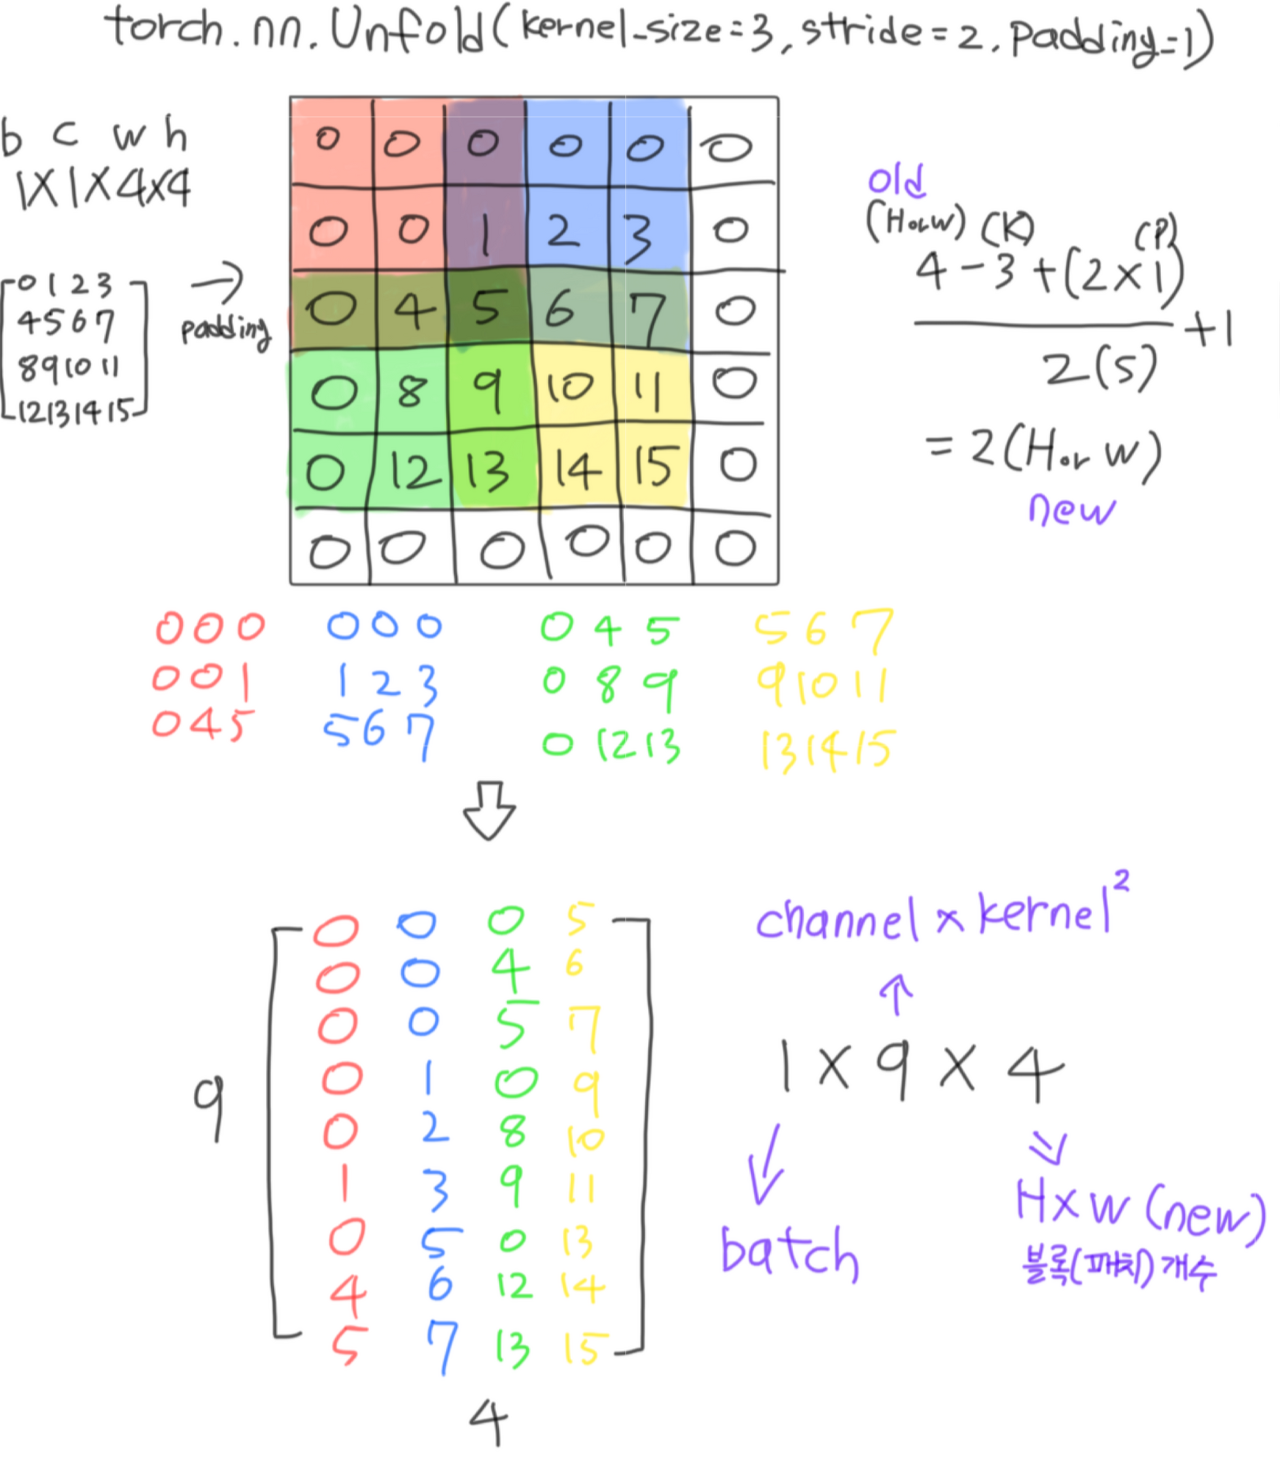 torch.nn.Unfold(kernel_size=3, stride=2, padding=1)
b c w h
1X1X4X4
0 1 2 3
4 5 6 7
8 9 10 11
12 13 14 15
padding
0 0 0 0 0 0
0 0 1 2 3 0
0 4 5 6 7 0
0 8 9 10 11 0
0 12 13 14 15 0
0 0 0 0 0 0
old
(H or W) (K) (P)
4-3+(2×1)
2(S)
+1
=2(H or W)
new
0 0 0 0 0 0 0 4 5 5 6 7
0 0 1 1 2 3 0 8 9 9 10 11
0 4 5 5 6 7 0 12 13 13 14 15
0 0 0 5
0 0 4 6
0 0 5 7
0 1 0 9
0 2 8 10
1 3 9 11
0 5 0 13
4 6 12 14
5 7 13 15
9
4
channel × kernel²
1 × 9 × 4
batch
H×W (new)
블록(패치) 개수